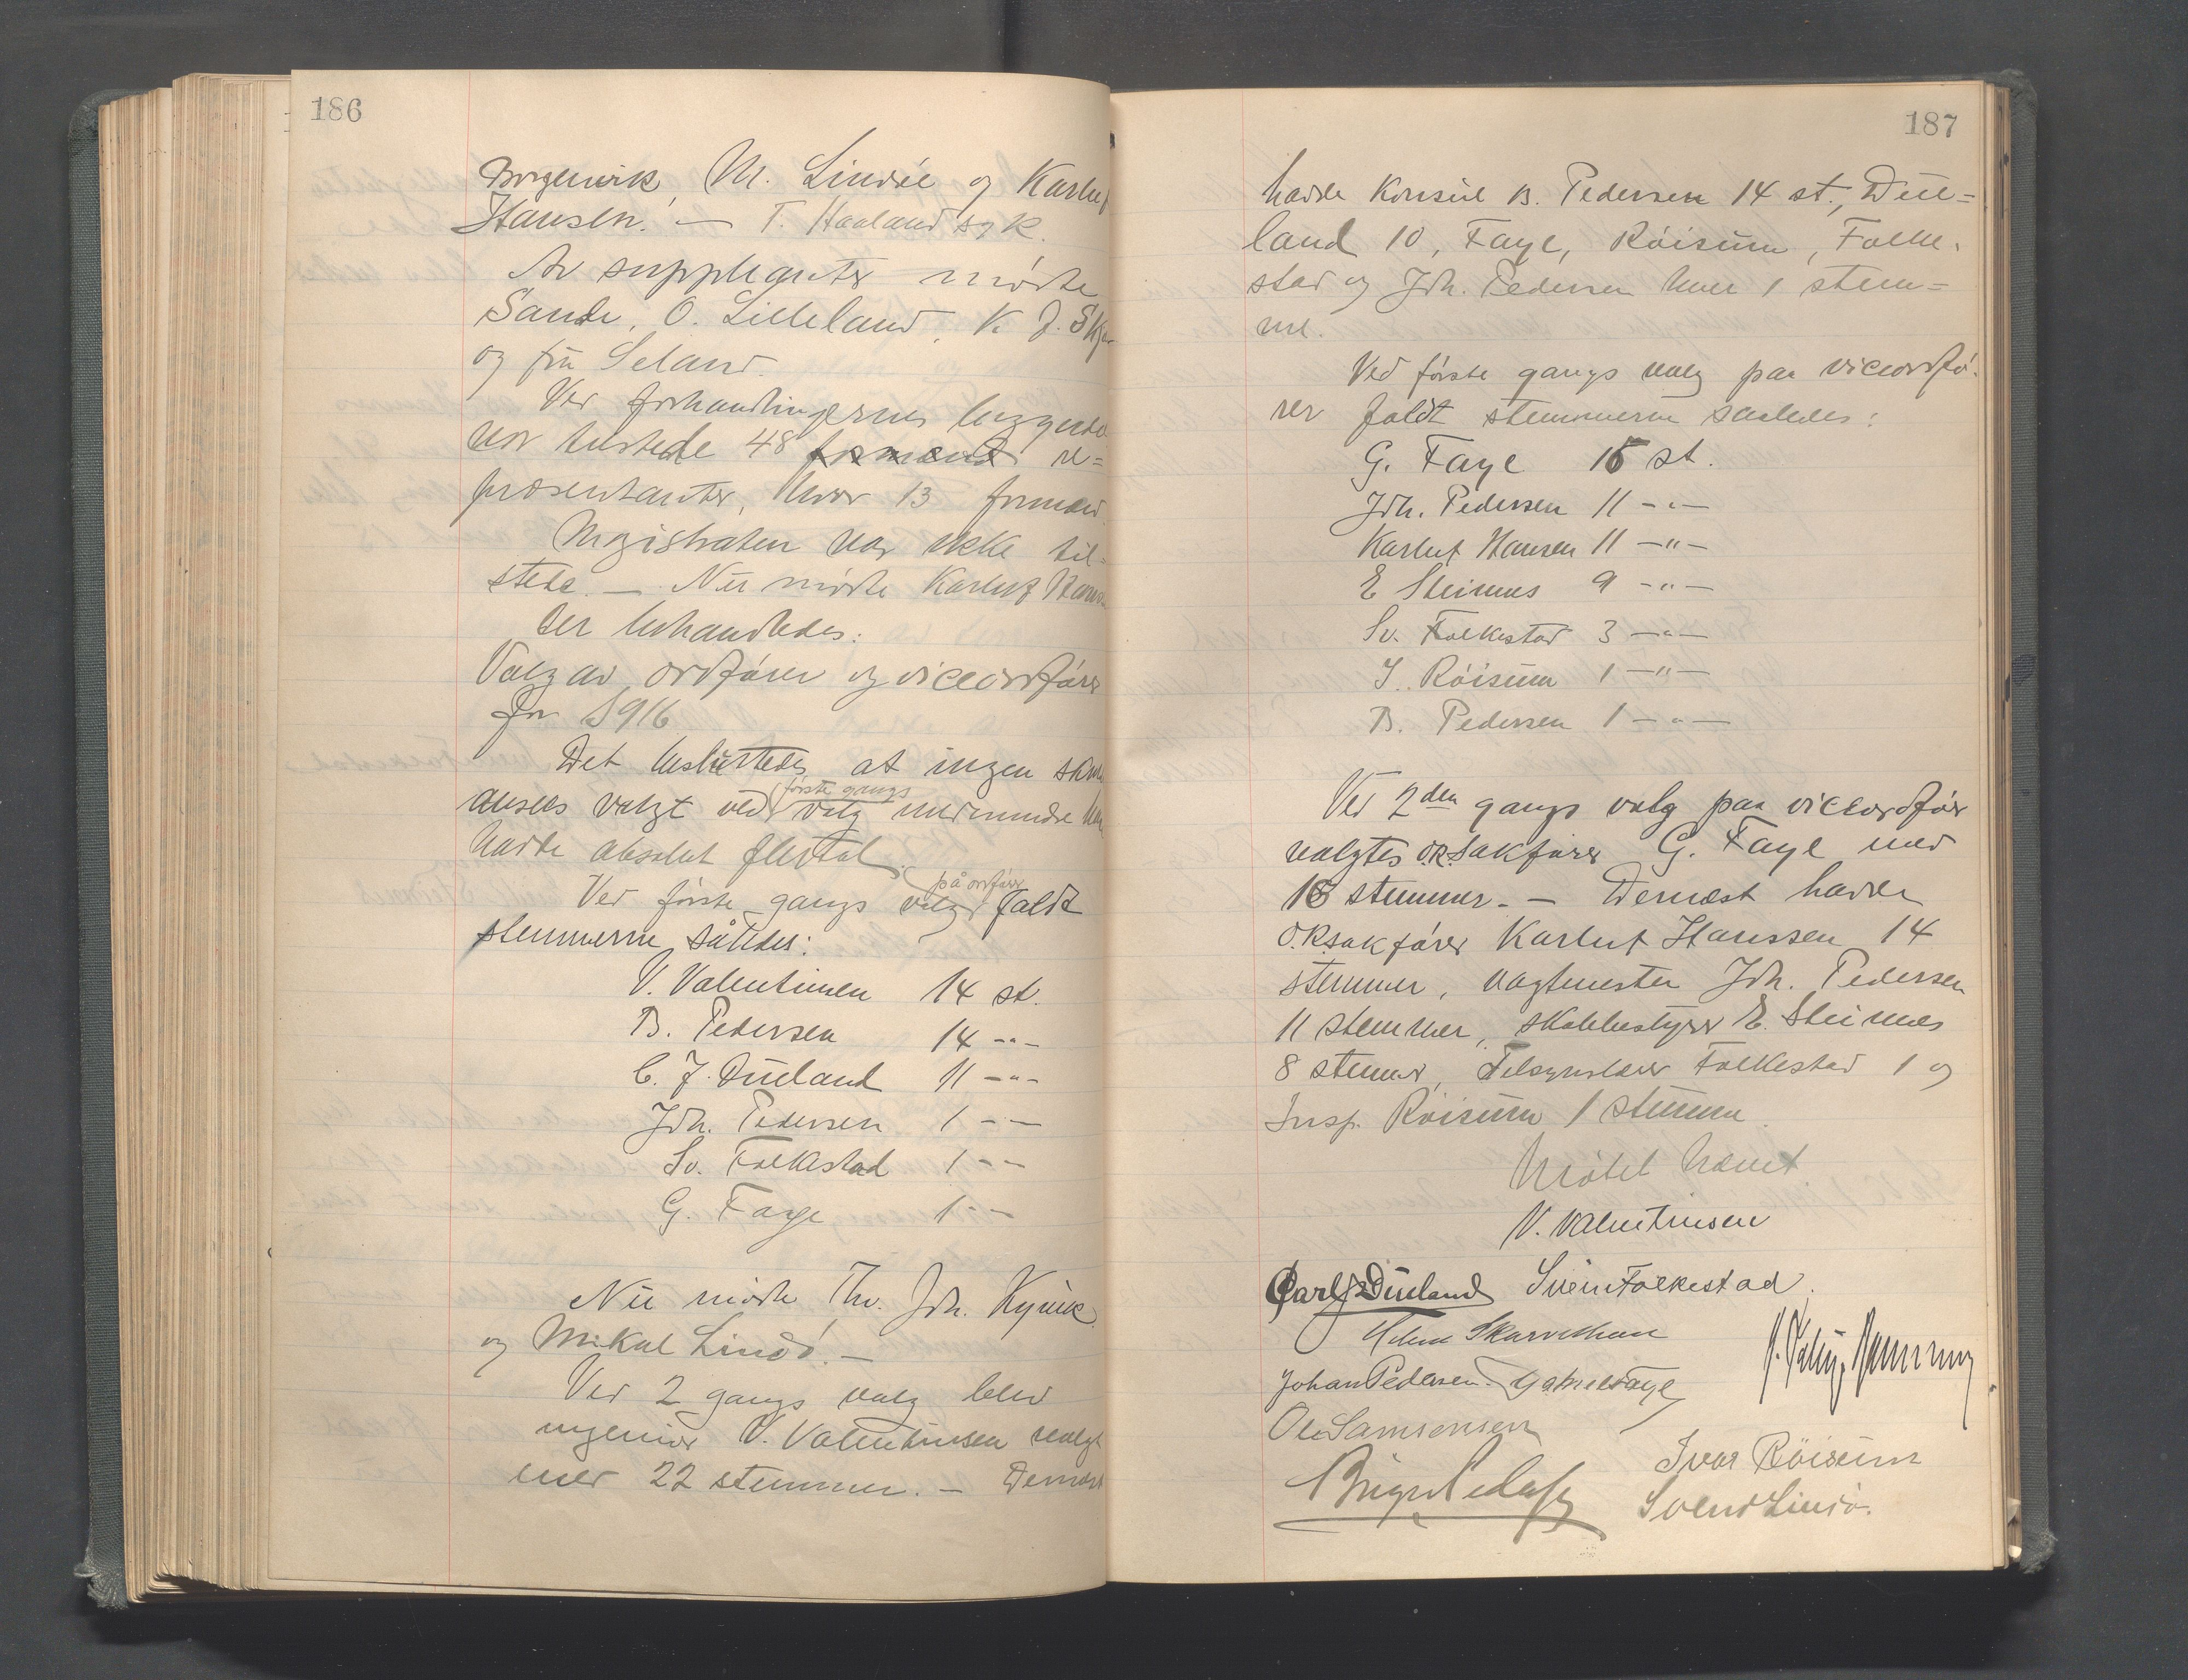 186
Borgenvik, M. Lindöe og Karluf
Hansen. — T. Haaland syk.
Av suppleanter mödte
Sande, O. Lilleland, K. J. Skjer
og fru Seland.
Ved forhandlingernes begyndelse
var tilstede 48 formænd re=
præsentanter, hvor 13 formænd.
Magistraten var ikke til=
stede. — Nu mödte Karluf Hansen
Der behandledes:
Valg av ordförer og viceordförer
for 1916
Det besluttedes at ingen skulde
ansees valgt ved förste gangs valg medmindre han
havde absolut flertal.
Ved förste gangs valg på ordförer faldt
stemmerne således:
V. Valentinsen 14 st.
B. Pedersen 14 -"-
C. J. Dueland 11 -"-
Joh. Pedersen 1 - -
Sv. Folkestad 1 - -
G. Faye 1 - -
Nu mödte Thv. Joh. Kyvik
og Mikal Lindö. —
Ved 2 gangs valg blev
ingeniör V. Valentinsen valgt
med 22 stemmer. — Dernæst
187
havde Konsul B. Pedersen 14 st., Due=
land 10, Faye, Röisum, Folke-
stad og Joh. Pedersen hver 1 stem=
me.
Ved förste gangs valg paa viceordfö-
rer faldt stemmerne saaledes:
G. Faye 15 st.
Joh. Pedersen 11 -"-
Karluf Hansen 11 -"-
E Steinnes 9 -"-
Sv. Folkestad 3 -"-
I. Röisum 1 -"-
B. Pedersen 1 -"-
Ved 2den gangs valg paa viceordförer
valgtes o.r.sakförer G. Faye med
16 stemmer. — Dernæst havde
o.r.sakförer Karluf Hanssen 14
stemmer, vagtmester Joh. Pedersen
11 stemmer, skolebestyrer E. Steinnes
8 stemmer, Telegrafbest Folkestad 1 og
Insp. Röisum 1 stemme.
Mötet hævet
V. Valentinsen
Carl J Dueland Svein Folkestad.
Skarvethun
Johan Pedersen. Gabriel Faye
Ole Samsonsen
Ivar Röisum
Svend Lindö.